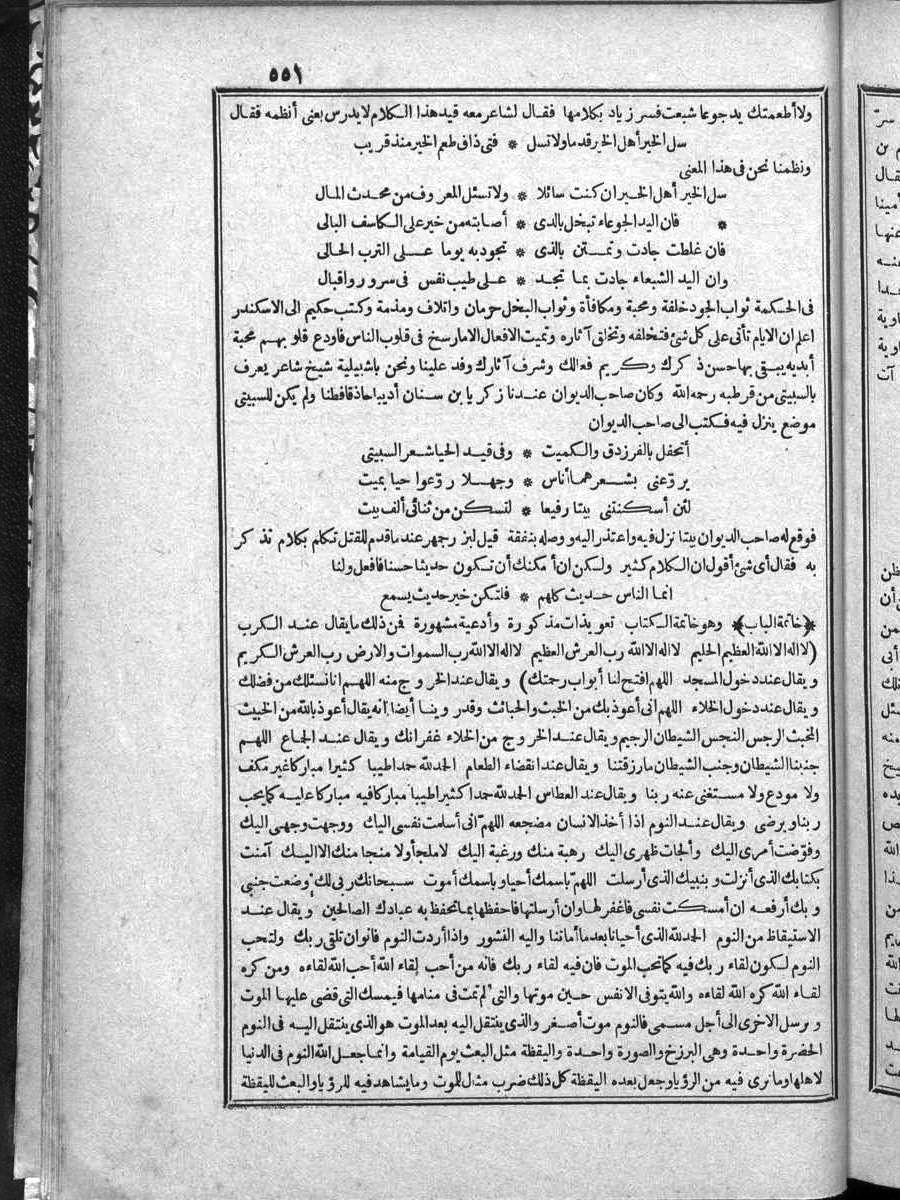 ٥٥١
ولا أطعمتك يد جوعا شبعت فسر زياد بكلامها فقال لشاعر معه قيد هذا الكلام لا يدرس يعني أنظمه فقال
سل الخير أهل الخير قدما ولا تسل * فتى ذاق طعم الخير منذ قريب
ونظمنا نحن في هذا المعنى
سل الخير أهل الخير ان كنت سائلا * ولا تسئل المعروف من محدث المال
* فان اليد الجوعاء تبخل بالذي * أصابته من خير على الكاسف البالي
فان غلطت جادت وتمتن بالذي * تجود به يوما على الترب الحالي
وان اليد الشبعاء جادت بما تجد * على طيب نفس في سرور واقبال
في الحكمة ثواب الجود خلفة ومحبة ومكافأة وثواب البخل حرمان واتلاف ومذمة وكتب حكيم الى الاسكندر
اعلم ان الايام تأتي على كل شئ فتخلفه وتخلق آثاره وتميت الافعال الا ما رسخ في قلوب الناس فاودع قلوبهم محبة
أبديه يبقى بها حسن ذكرك وكريم فعالك وشرف آثارك وفد علينا ونحن باشبيلية شيخ شاعر يعرف
بالسبيتي من قرطبه رحمه الله وكان صاحب الديوان عندنا زكريا بن سنان أديبا حاذقا فطنا ولم يكن للسبيتي
موضع ينزل فيه فكتب الى صاحب الديوان
أتحفل بالفرزدق والكميت * وفي قيد الحيا شعر السبيتي
يروّعني بشعرهما أناس * وجهلا روّعوا حيا بميت
لئن أسكنتني بيتا رفيعا * لتسكن من ثنائي ألف بيت
فوقع له صاحب الديوان بيتا نزل فيه واعتذر اليه ووصله بنفقة قيل لبزرجمهر عندما قدم للقتل تكلم بكلام تذكر
به فقال أي شئ أقول ان الكلام كثير ولكن ان أمكنك أن تكون حديثا حسنا فافعل ولنا
انما الناس حديث كلهم * فلتكن خير حديث يسمع
﴿خاتمة الباب﴾ وهو خاتمة الكتاب تعويذات مذكورة وأدعية مشهورة فمن ذلك ما يقال عند الكرب
(لا اله الا الله العظيم الحليم لا اله الا الله رب العرش العظيم لا اله الا الله رب السموات والارض رب العرش الكريم
ويقال عند دخول المسجد اللهم افتح لنا أبواب رحمتك) ويقال عند الخروج منه اللهم انا نسئلك من فضلك
ويقال عند دخول الخلاء اللهم اني أعوذ بك من الخبث والخبائث وقد روينا أيضا انه يقال أعوذ بالله من الخبيث
المخبث الرجس النجس الشيطان الرجيم ويقال عند الخروج من الخلاء غفرانك ويقال عند الجماع اللهم
جنبنا الشيطان وجنب الشيطان ما رزقتنا ويقال عند انقضاء الطعام الحمد لله حمدا طيبا كثيرا مباركا غير مكف
ولا مودع ولا مستغنى عنه ربنا ويقال عند العطاس الحمد لله حمدا كثيرا طيبا مباركا فيه مباركا عليه كما يحب
ربنا ويرضى ويقال عند النوم اذا أخذ الانسان مضجعه اللهم اني أسلمت نفسي اليك ووجهت وجهي اليك
وفوّضت أمري اليك وألجأت ظهري اليك رهبة منك ورغبة اليك لا ملجأ ولا منجا منك الا اليك آمنت
بكتابك الذي أنزلت وبنبيك الذي أرسلت اللهم باسمك أحيا وباسمك أموت سبحانك ربي لك وضعت جنبي
وبك أرفعه ان أمسكت نفسي فاغفر لها وان أرسلتها فاحفظها بما تحفظ به عبادك الصالحين ويقال عند
الاستيقاظ من النوم الحمد لله الذي أحيانا بعد ما أماتنا واليه النشور واذا أردت النوم فانو ان تلقى ربك ولتحب
النوم لكون لقاء ربك فيه كما تحب الموت فان فيه لقاء ربك فانه من أحب لقاء الله أحب الله لقاءه ومن كره
لقاء الله كره الله لقاءه والله يتوفى الانفس حين موتها والتي لم تمت في منامها فيمسك التي قضى عليها الموت
ويرسل الاخرى الى أجل مسمى فالنوم موت أصغر والذي ينتقل اليه بعد الموت هو الذي ينتقل اليه في النوم
الحضرة واحدة وهي البرزخ والصورة واحدة واليقظة مثل البعث يوم القيامة وانما جعل الله النوم في الدنيا
لاهلها وما نرى فيه من الرؤيا وجعل بعده اليقظة كل ذلك ضرب مثال للموت وما يشاهد فيه للرؤيا والبعث لليقظة